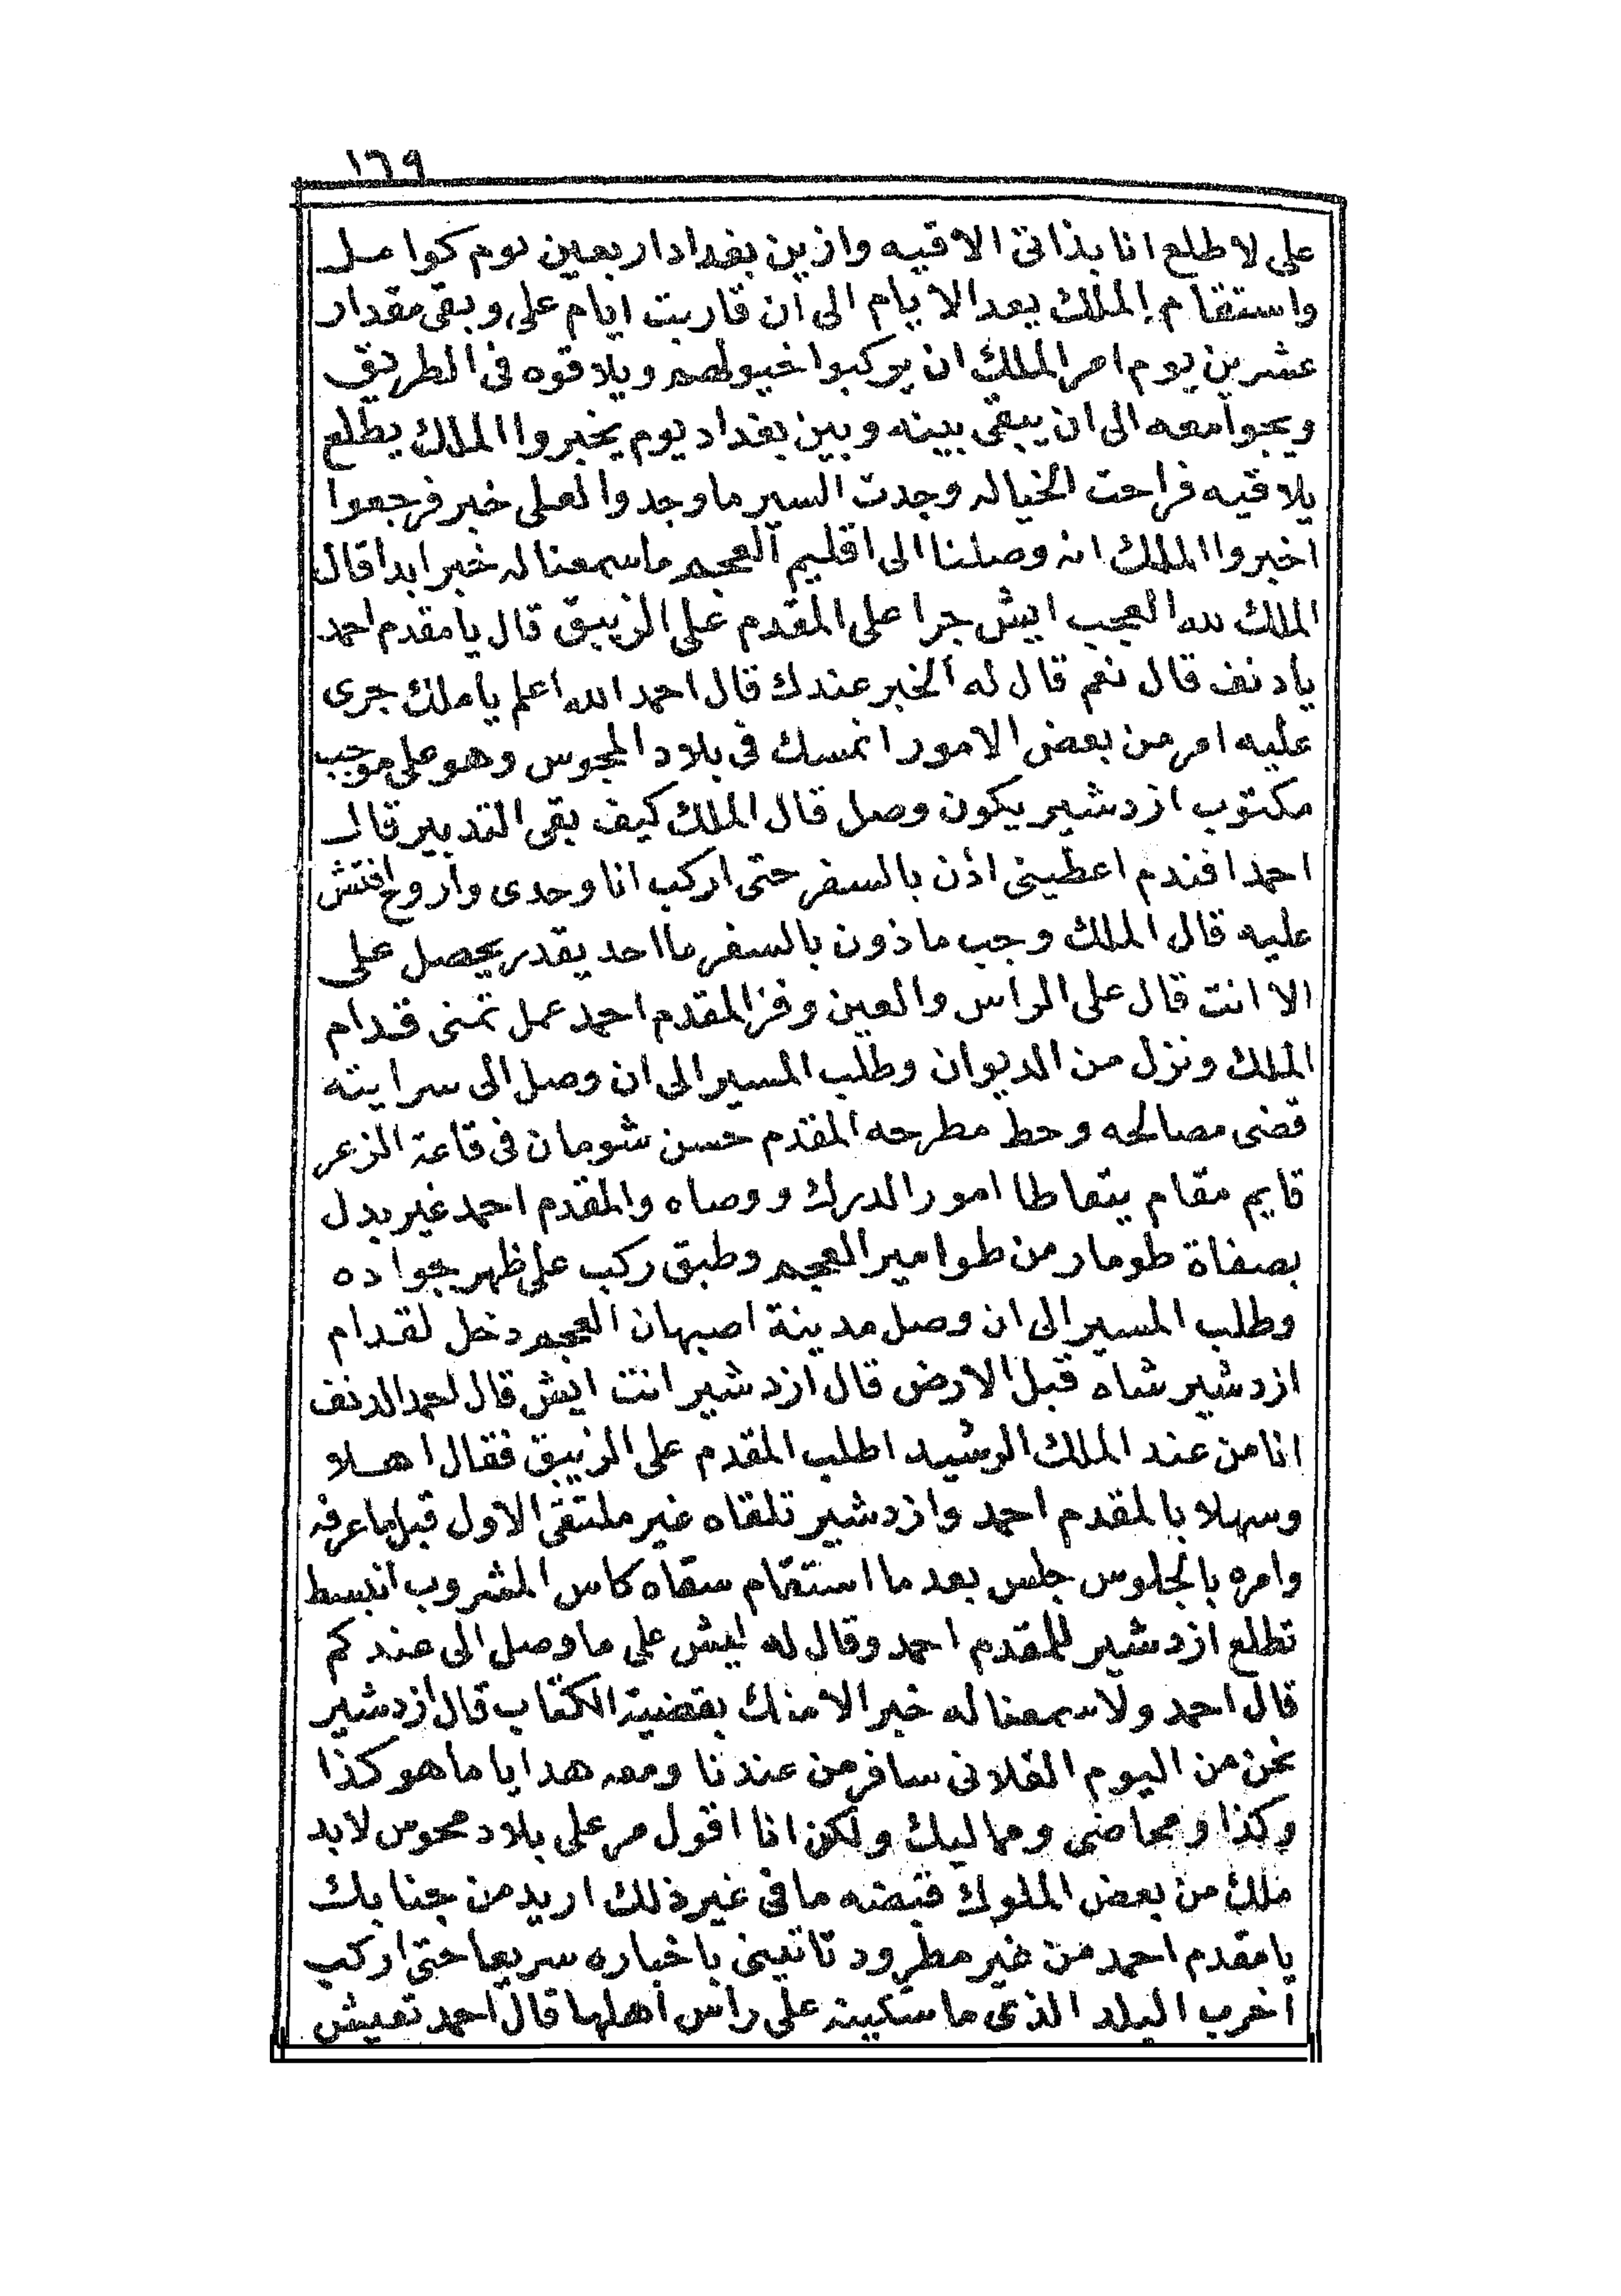 ١٦٩
على لاطلع انا بذاتى الاقيه وازين بغداد اربعين يوم كوامل
واستقام الملك يعد الايام الى ان قاربت ايام على وبقى مقدار
عشرين يوم امر الملك ان يركبوا خيولهم ويلاقوه فى الطريق
ويجوا معه الى ان يبقى بينه وبين بغداد يوم يخبروا الملك يطلع
يلاقيه فراحت الخياله وجدت السير ما وجدوا لعلى خبر فرجعوا
اخبروا الملك انه وصلنا الى اقليم العجم ما سمعنا له خبر ابدا قال
الملك لله العجب ايش جرا على المقدم على الزيبق قال يا مقدم احمد
يا دنف قال نعم قال له الخبر عندك قال احمد الله اعلم يا ملك جرى
عليه امر من بعض الامور انمسك فى بلاد المجوس وهو على موجب
مكتوب ازدشير يكون وصل قال الملك كيف بقى التدبير قال
احمد افندم اعطينى اذن بالسفر حتى اركب انا وحدى واروح افتش
عليه قال الملك وجب ماذون بالسفر ما احد يقدر يحصل على
الا انت قال على الراس والعين وفز المقدم احمد عمل تمنى قدام
الملك ونزل من الديوان وطلب المسير الى ان وصل الى سرايته
قضى مصالحه وحط مطرحه المقدم حسن شومان فى قاعة الزعر
قايم مقام يتعاطا امور الدرك ووصاه والمقدم احمد غير بدل
بصفاة طومار من طوامير العجم وطبق ركب على ظهر جواده
وطلب المسير الى ان وصل مدينة اصبهان العجم دخل لقدام
ازدشير شاه قبل الارض قال ازدشير انت ايش قال احمد الدنف
انا من عند الملك الرشيد اطلب المقدم على الزيبق فقال اهلا
وسهلا بالمقدم احمد وازدشير تلقاه غير ملتقى الاول قبل ما عرفه
وامره بالجلوس جلس بعد ما استقام سقاه كاس المشروب انبسط
تطلع ازدشير للمقدم احمد وقال له ليش على ما وصل الى عندكم
قال احمد ولا سمعنا له خبر الا منك بقضية الكتاب قال ازدشير
نحن من اليوم الفلانى سافر من عندنا ومعه هدايا ما هو كذا
وكذا ومحاضى ومماليك ولكن انا اقول مر على بلاد مجوس لابد
ملك من بعض الملوك قبضه ما فى غير ذلك اريد من جنابك
يا مقدم احمد من غير مطرود تاتينى باخباره سريعا حتى اركب
اخرب البلد الذى ماسكينه على راس اهلها قال احمد تعيش